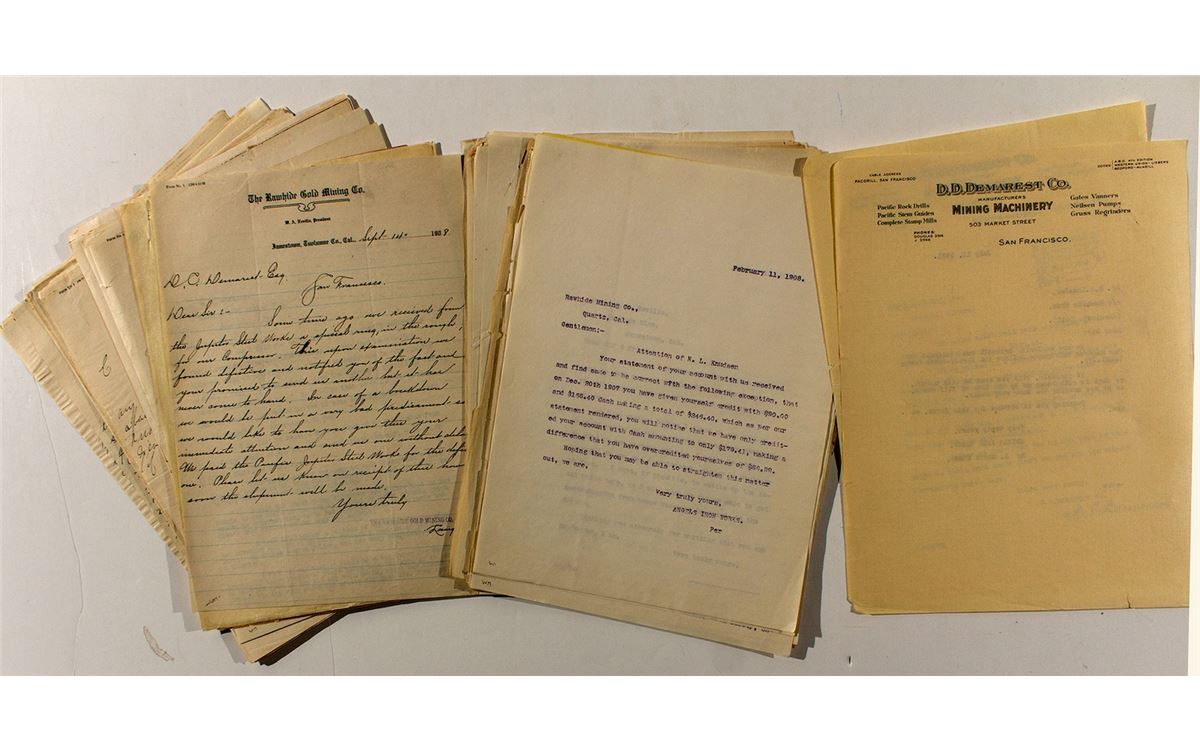 The Rawhide Gold Mining Co.
W. A. Nevills, President
Jamestown, Tuolumne Co., Cal. Sept 14th 1908
D. C. Demarest Esq.
San Francisco.
Dear Sir :-
Some time ago we received from
the Jupiter Steel Works a special ring, in the rough,
for our Compressor. This upon examination we
found defective and notified you of the fact and
you promised to send us another but it has
never come to hand. In case of a breakdown
we would be put in a very bad predicament so
we would like to have you give this your
immediate attention and send us one without
We paid the Pacific Jupiter Steel Works for the
one. Please let us know on receipt of this how
soon the shipment will be made.
Yours truly
THE RAWHIDE GOLD MINING CO.
February 11, 1908.
Rawhide Mining Co.,
Quartz, Cal.
Gentlemen:-
Attention of N. L. Knudsen
Your statement of your account with us received
and find same to be correct with the following exception, that
on Dec. 20th 1907 you have given yourself credit with $80.00
and $166.40 Cash making a total of $246.40, which as per our
statement rendered, you will notice that we have only credit-
ed your account with Cash amounting to only $179.41, making a
difference that you have overcredited yourselves of
Hoping that you may be able to straighten this matter
out, we are,
Very truly yours,
ANGELS IRON WORKS.
Per
CABLE ADDRESS
PACDRILL, SAN FRANCISCO
CODES
A.B.C. 4TH EDITION
WESTERN UNION - LIEBERS
BEDFORD-McNEILL
D.D. DEMAREST CO.
MANUFACTURERS
MINING MACHINERY
503 MARKET STREET
SAN FRANCISCO.
Pacific Rock Drills
Pacific Stem Guides
Complete Stamp Mills
PHONES:
Gates Vanners
Neilsen Pumps
Grass Regrinders